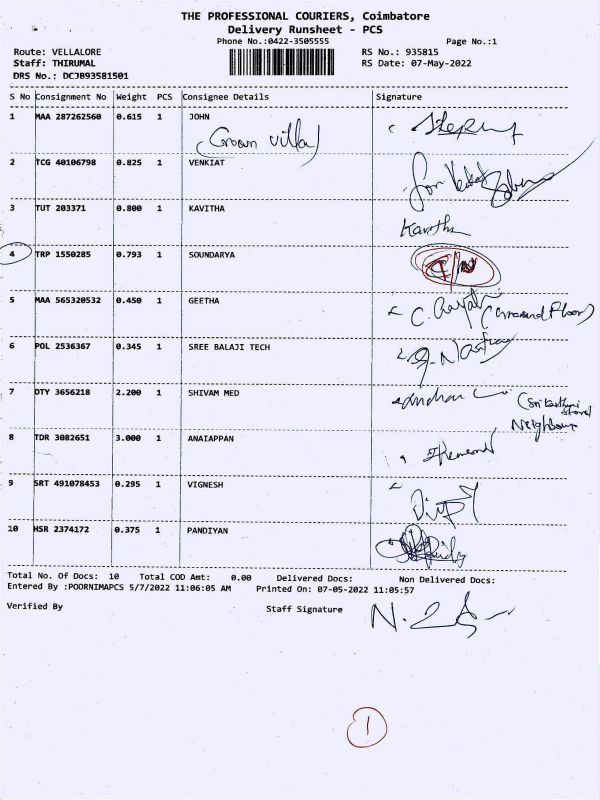 THE PROFESSIONAL COURIERS, Coimbatore
Delivery Runsheet - PCS
Phone No.:0422-3505555 Page No.:1
Route: VELLALORE RS No.: 935815
Staff: THIRUMAL RS Date: 07-May-2022
DRS No.: DCJB93581501
S No Consignment No Weight PCS Consignee Details Signature
1 MAA 287262560 0.615 1 JOHN
Crown villa
2 TCG 40106798 0.825 1 VENKIAT
3 TUT 203371 0.800 1 KAVITHA
Kavitha
4 TRP 1550285 0.793 1 SOUNDARYA
5 MAA 565320532 0.450 1 GEETHA
(Ground Floor)
6 POL 2536367 0.345 1 SREE BALAJI TECH
7 DTY 3656218 2.200 1 SHIVAM MED
Neighbour
8 TDR 3082651 3.000 1 ANAIAPPAN
9 SRT 491078453 0.295 1 VIGNESH
10 HSR 2374172 0.375 1 PANDIYAN
Total No. Of Docs: 10 Total COD Amt: 0.00 Delivered Docs: Non Delivered Docs:
Entered By :POORNIMAPCS 5/7/2022 11:06:05 AM Printed On: 07-05-2022 11:05:57
Verified By Staff Signature
1